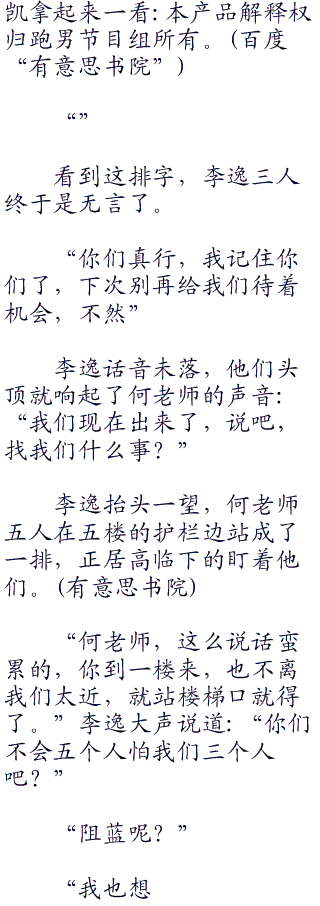 凯拿起来一看:本产品解释权
归跑男节目组所有。(百度
“有意思书院”)
“”
看到这排字，李逸三人
终于是无言了。
“你们真行，我记住你
们了，下次别再给我们待着
机会，不然”
李逸话音未落，他们头
顶就响起了何老师的声音:
“我们现在出来了，说吧，
找我们什么事？”
李逸抬头一望，何老师
五人在五楼的护栏边站成了
一排，正居高临下的盯着他
们。(有意思书院)
“何老师，这么说话蛮
累的，你到一楼来，也不离
我们太近，就站楼梯口就得
了。”李逸大声说道:“你们
不会五个人怕我们三个人
吧？”
“阻蓝呢？”
“我也想